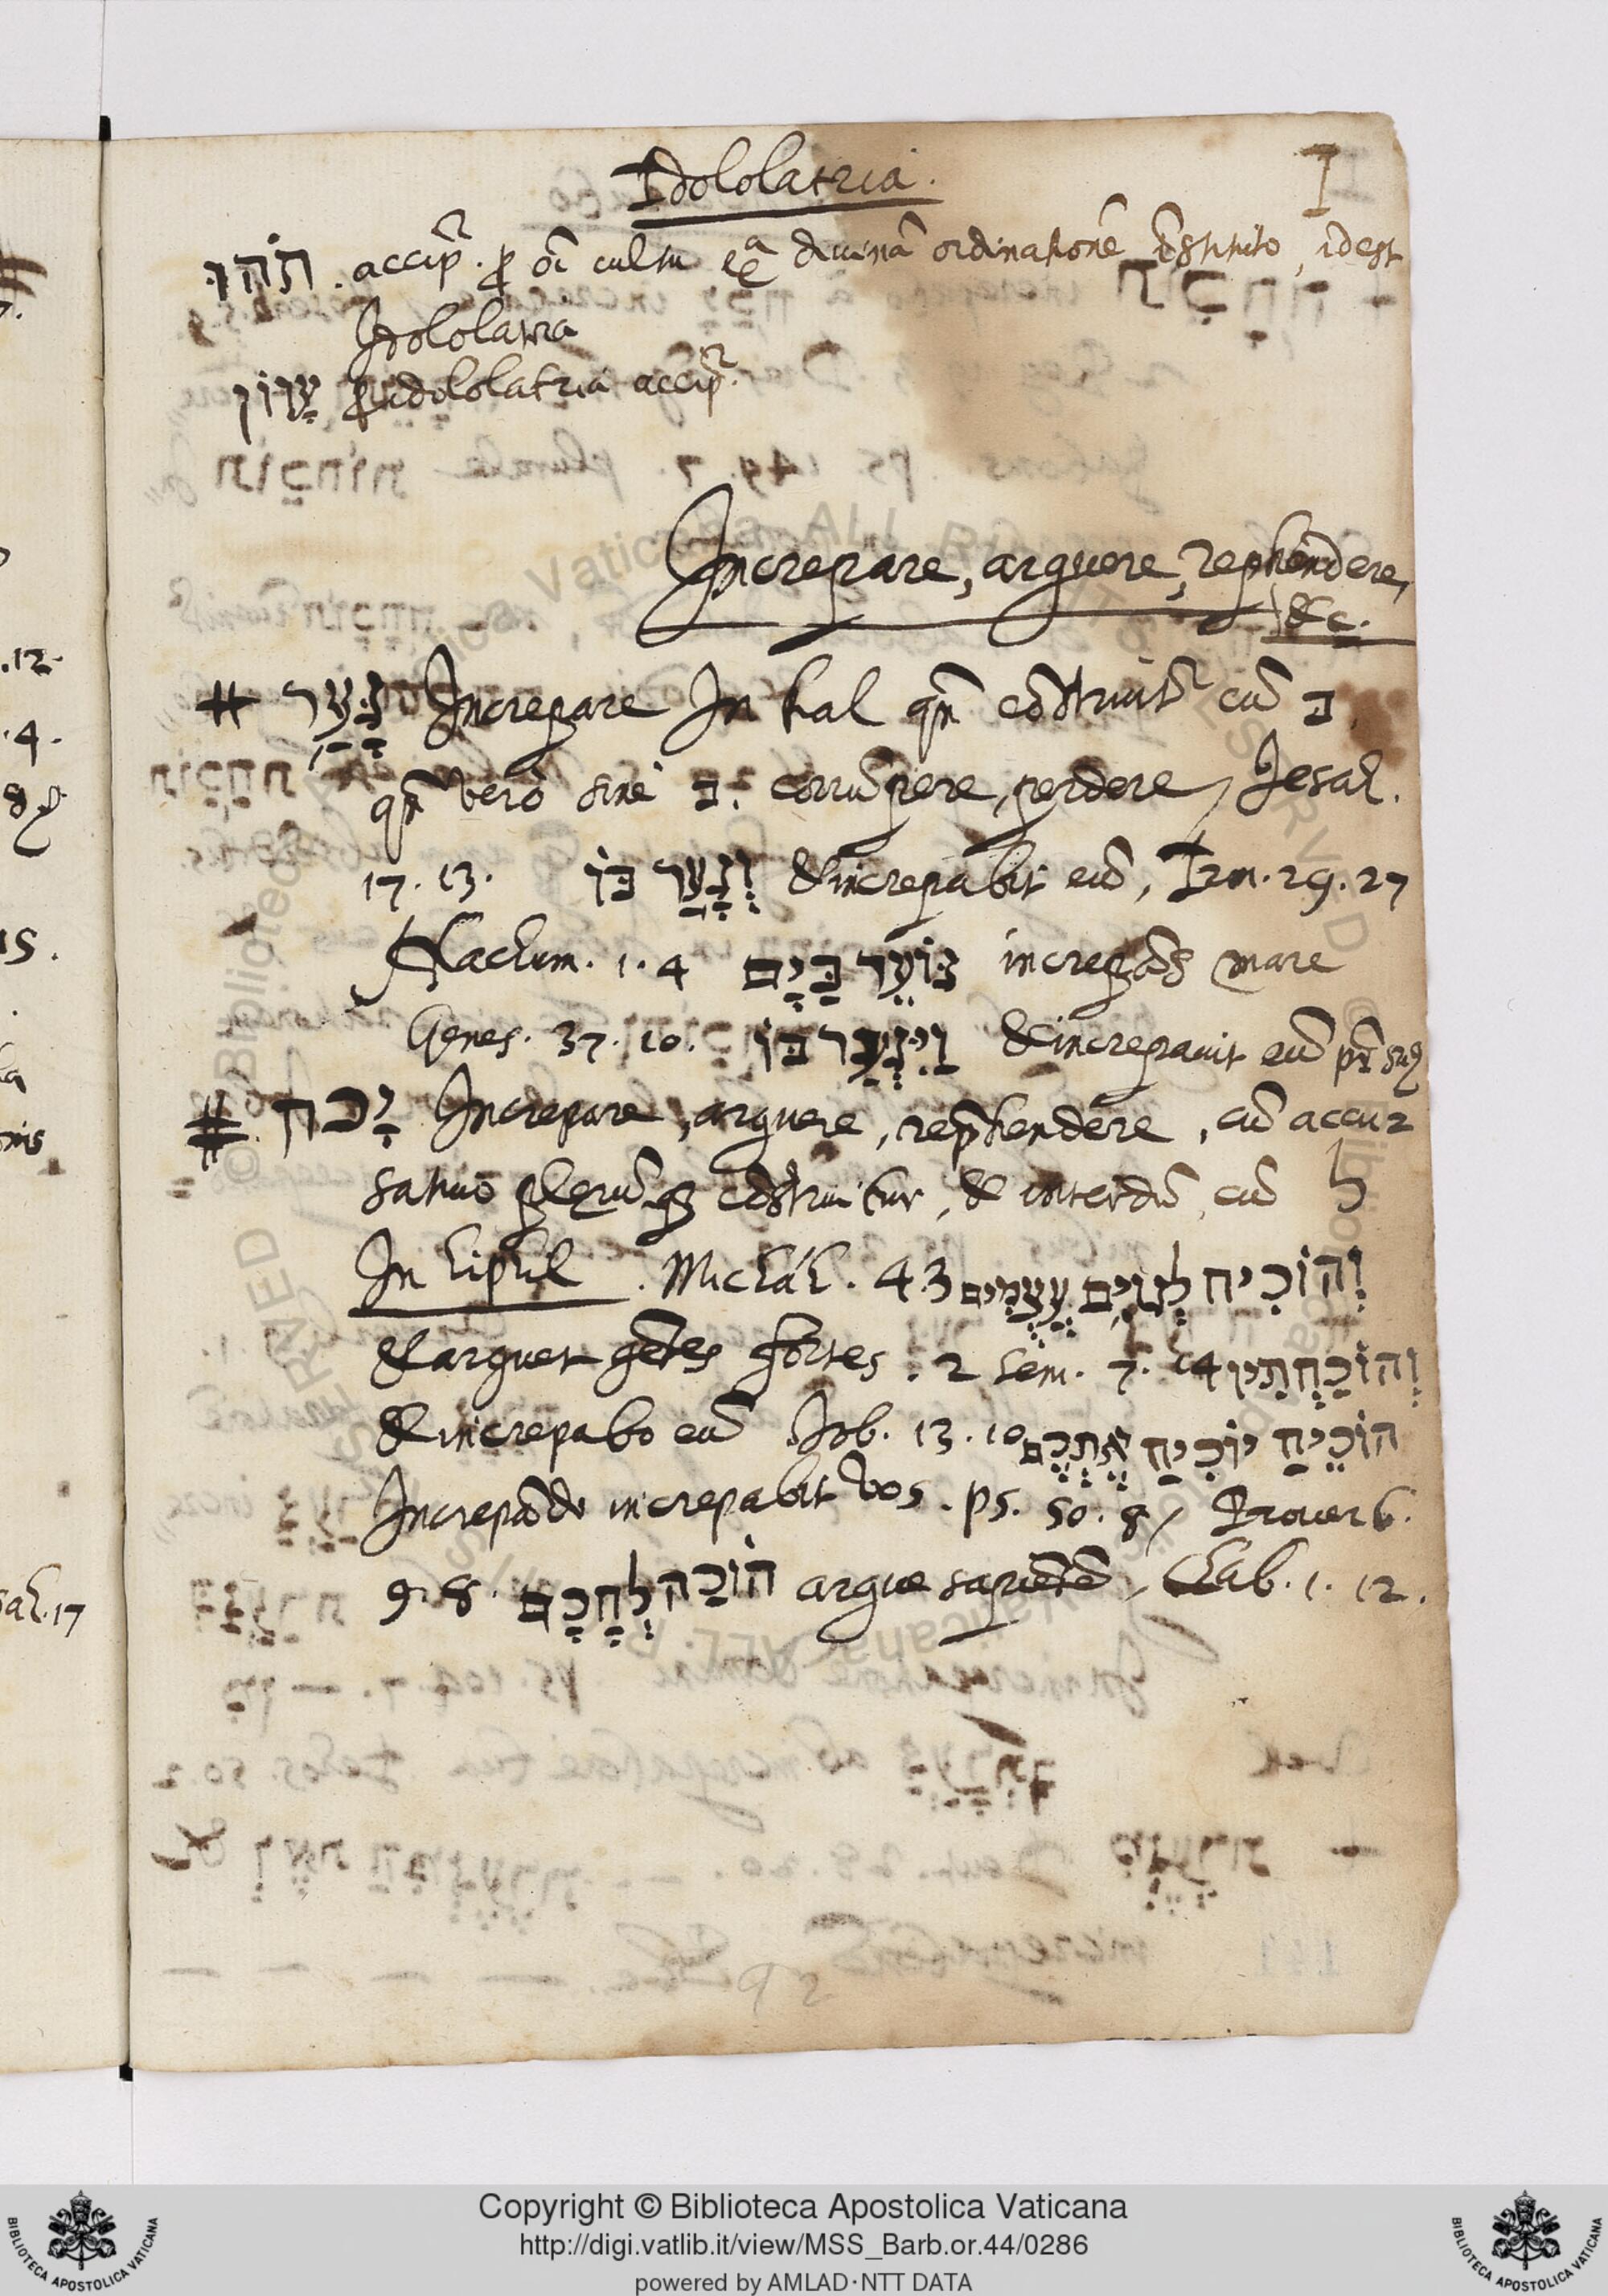 I
Idololatria.
תֹהוּ. accip̃. ꝓ oĩ cultu cõtra diuinã ordinationẽ ĩstituto, idest
Idololatria
עָוֹן ꝓ idololatria accip̃.
Increpare, arguere, reprehendere,
&c.
# גָּעַר Increpare In kal qñ cõstruit̃ cũ בּ.
qñ verò sine בּ. corrũpere, perdere, Iesah.
17. 13. וְגָעַר בּוֹ & increpabit eũ, Irm. 29. 27
Nachum. 1. 4 גּוֹעֵר בַּיָּם increpãs mare
Genes. 37. 10. וַיִּגְעַר בּוֹ & increpauit eũ pr̃
#. יָכַח Increpare, arguere, reprẽhendere, cũ accu=
satiuo plerũq; cõstruitur, & interdũ cũ ל
In hiphil. Michàh. 4. 3 וְהוֹכִיחַ לְגוֹיִם עֲצֻמִים
& arguet gẽtes fortes. 2 Sem. 7. 14 וְהוֹכַחְתִּיו
& increpabo eũ Iob. 13. 10 הוֹכֵיחַ יוֹכִיחַ אֶתְכֶם
Increpãdo increpabit vos. ps. 50. 8, Prouerb.
9. 8. הוֹכַח לְחָכָם argue sapiẽtẽ, Chab. 1. 12.
.12.
.4.
15.
sah. 17
Copyright © Biblioteca Apostolica Vaticana
http://digi.vatlib.it/view/MSS_Barb.or.44/0286
powered by AMLAD·NTT DATA
BIBLIOTECA APOSTOLICA VATICANA
BIBLIOTECA APOSTOLICA VATICANA